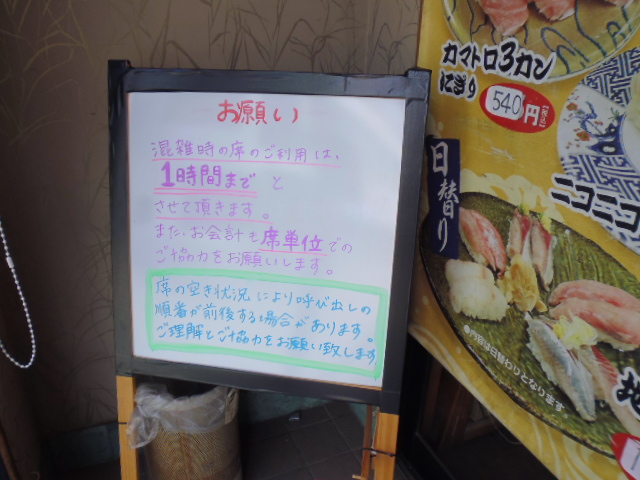 お願い
混雑時の席のご利用は、
1時間までと
させて頂きます。
また、お会計も席単位での
ご協力をお願いします。
席の空き状況により呼び出しの
順番が前後する場合があります。
ご理解とご協力をお願い致します
カマトロ3カン
にぎり
540円
【税込】
日替り
ニコニコ
●内容は日替わりとなります
地